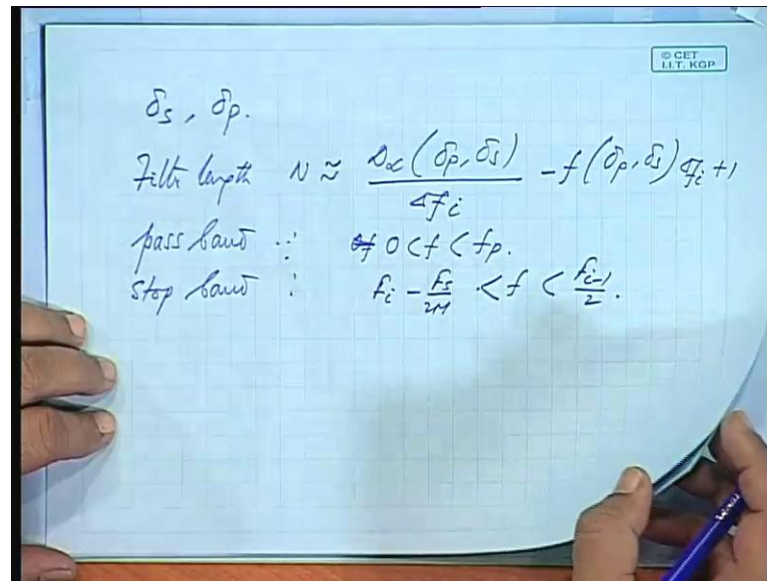 © CET
I.I.T. KGP
δs, δp.
Filter length N ≈ D∞(δp, δs) / Δfi - f(δp, δs) Δfi + 1
pass band : 0 < f < fp.
stop band : Fi - Fs/2M < f < Fi-1/2.